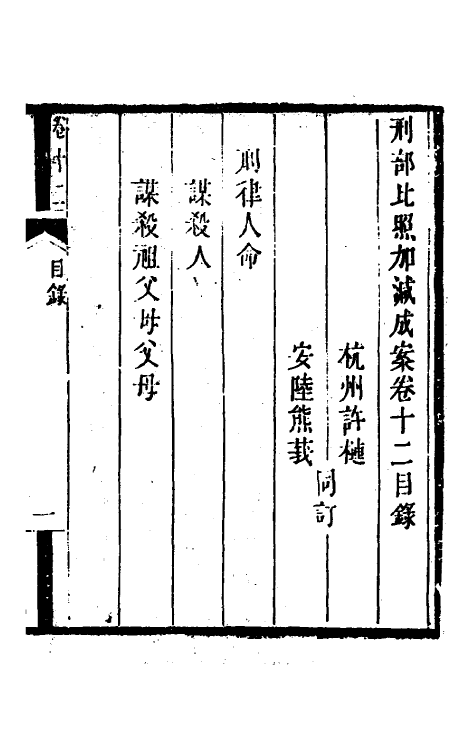 刑部比照加減成案卷十二目錄
杭州許槤
安陸熊莪
同訂
刑律人命
謀殺人
謀殺祖父母父母
卷十二
目錄
一